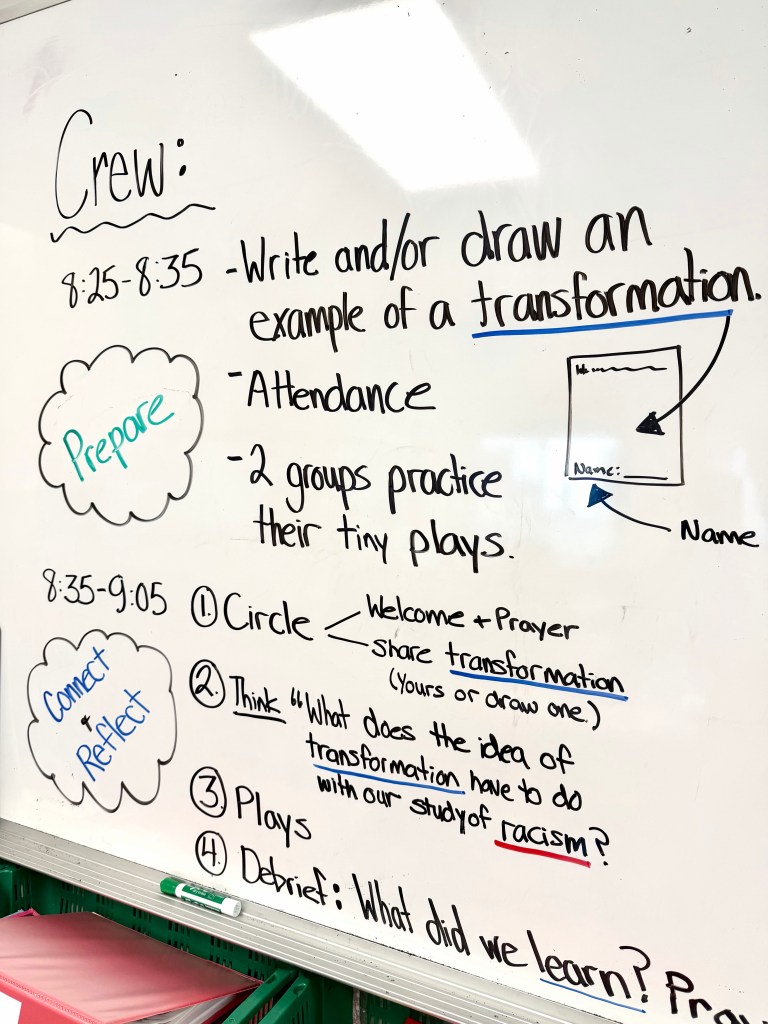 Crew:
8:25-8:35 -Write and/or draw an
example of a transformation.
Prepare
-Attendance
-2 groups practice
their tiny plays.
Name:
Name
8:35-9:05
Connect
+
Reflect
①. Circle
Welcome + Prayer
share transformation
(Yours or draw one.)
②. Think "What does the idea of
transformation have to do
with our study of racism?
③. Plays
④. Debrief: What did we learn?